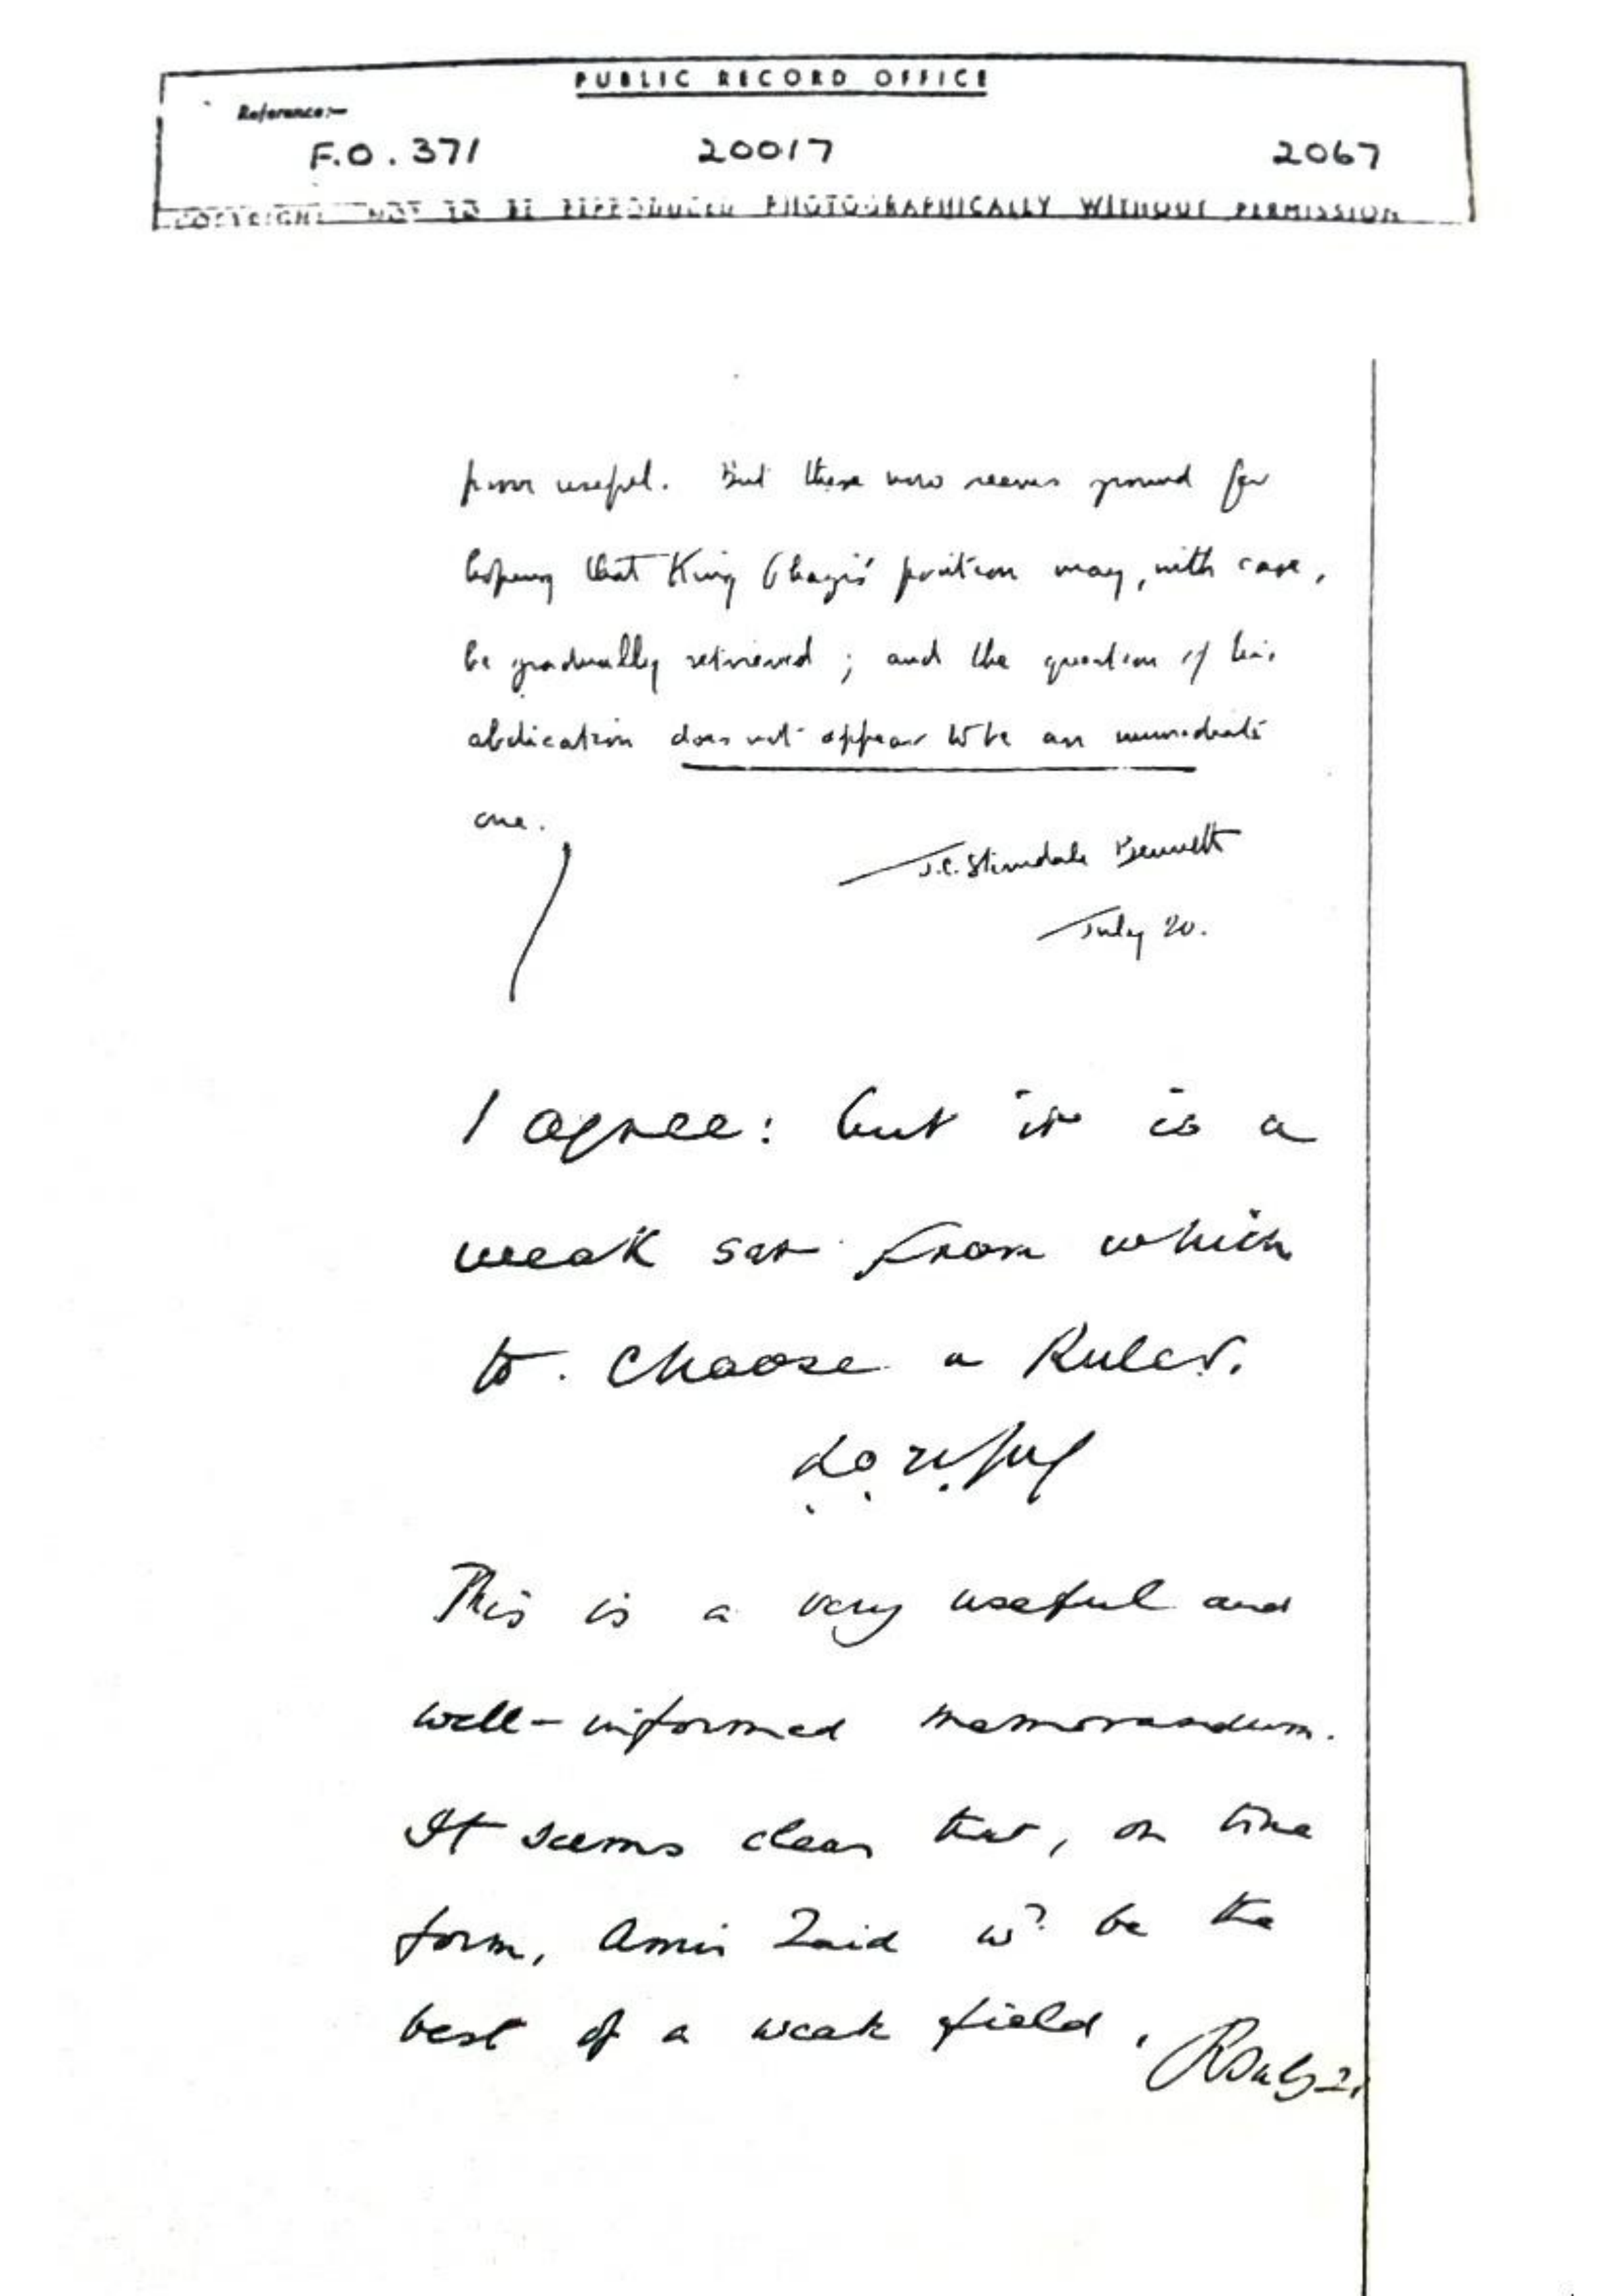 PUBLIC RECORD OFFICE
Reference:-
F.O. 371 20017 2067
COPYRIGHT NOT TO BE REPRODUCED PHOTOGRAPHICALLY WITHOUT PERMISSION
prove useful. But there now seems ground for
hoping that King Ghazi's position may, with care,
be gradually retrieved; and the question of his
abdication does not appear to be an immediate
one.
J.C. Sterndale Bennett
July 20.
I agree: but it is a
weak set from which
to choose a Ruler.
This is a very useful and
well-informed memorandum.
It seems clear that, on
form, Amir Zaid wd. be the
best of a weak field.